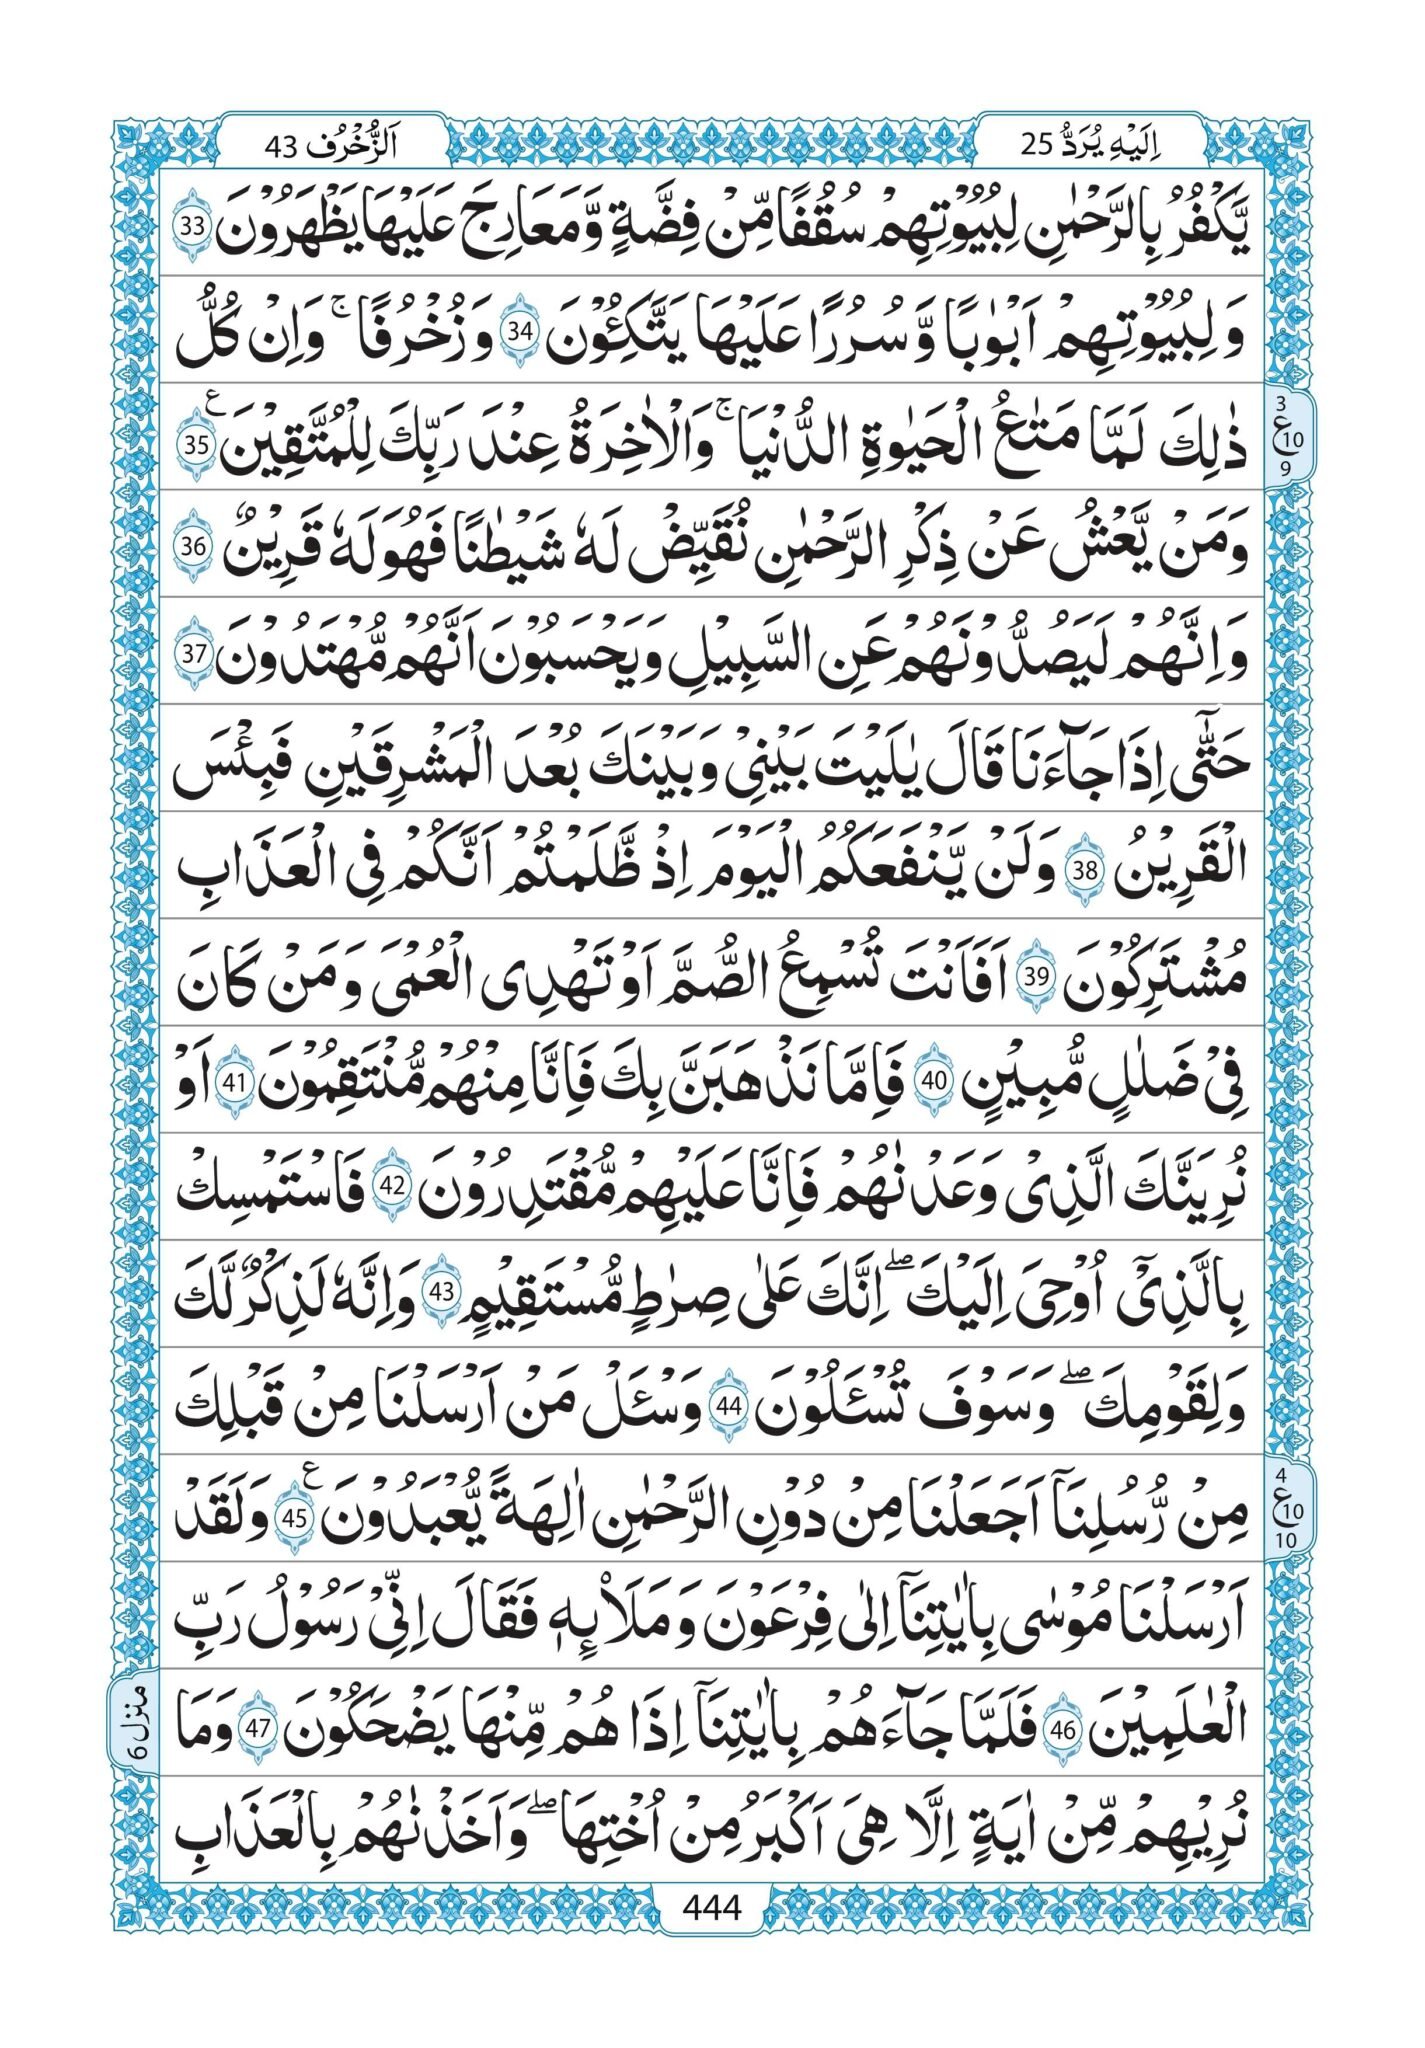 اِلَيْهِ يُرَدُّ 25
اَلزُّخْرُف 43
يَّكْفُرُ بِالرَّحْمٰنِ لِبُيُوْتِهِمْ سُقُفًا مِّنْ فِضَّةٍ وَّمَعَارِجَ عَلَيْهَا يَظْهَرُوْنَ 33
وَلِبُيُوْتِهِمْ اَبْوٰبًا وَّسُرُرًا عَلَيْهَا يَتَّكِئُوْنَ 34 وَزُخْرُفًا ۚ وَاِنْ كُلُّ
ذٰلِكَ لَمَّا مَتٰعُ الْحَيٰوةِ الدُّنْيَا ۚ وَالْاٰخِرَةُ عِنْدَ رَبِّكَ لِلْمُتَّقِيْنَ 35 ع
3 ع 10 9
وَمَنْ يَّعْشُ عَنْ ذِكْرِ الرَّحْمٰنِ نُقَيِّضْ لَهٗ شَيْطٰنًا فَهُوَ لَهٗ قَرِيْنٌ 36
وَاِنَّهُمْ لَيَصُدُّوْنَهُمْ عَنِ السَّبِيْلِ وَيَحْسَبُوْنَ اَنَّهُمْ مُّهْتَدُوْنَ 37
حَتّٰٓى اِذَا جَآءَنَا قَالَ يٰلَيْتَ بَيْنِيْ وَبَيْنَكَ بُعْدَ الْمَشْرِقَيْنِ فَبِئْسَ
الْقَرِيْنُ 38 وَلَنْ يَّنْفَعَكُمُ الْيَوْمَ اِذْ ظَّلَمْتُمْ اَنَّكُمْ فِى الْعَذَابِ
مُشْتَرِكُوْنَ 39 اَفَاَنْتَ تُسْمِعُ الصُّمَّ اَوْ تَهْدِى الْعُمْىَ وَمَنْ كَانَ
فِيْ ضَلٰلٍ مُّبِيْنٍ 40 فَاِمَّا نَذْهَبَنَّ بِكَ فَاِنَّا مِنْهُمْ مُّنْتَقِمُوْنَ 41 اَوْ
نُرِيَنَّكَ الَّذِيْ وَعَدْنٰهُمْ فَاِنَّا عَلَيْهِمْ مُّقْتَدِرُوْنَ 42 فَاسْتَمْسِكْ
بِالَّذِيْٓ اُوْحِيَ اِلَيْكَ ۖ اِنَّكَ عَلٰى صِرٰطٍ مُّسْتَقِيْمٍ 43 وَاِنَّهٗ لَذِكْرٌ لَّكَ
وَلِقَوْمِكَ ۖ وَسَوْفَ تُسْـَٔلُوْنَ 44 وَسْـَٔلْ مَنْ اَرْسَلْنَا مِنْ قَبْلِكَ
مِنْ رُّسُلِنَآ اَجَعَلْنَا مِنْ دُوْنِ الرَّحْمٰنِ اٰلِهَةً يُّعْبَدُوْنَ 45 ع وَلَقَدْ
4 ع 10 10
اَرْسَلْنَا مُوْسٰى بِاٰيٰتِنَآ اِلٰى فِرْعَوْنَ وَمَلَا۟ئِهٖ فَقَالَ اِنِّيْ رَسُوْلُ رَبِّ
الْعٰلَمِيْنَ 46 فَلَمَّا جَآءَهُمْ بِاٰيٰتِنَآ اِذَا هُمْ مِّنْهَا يَضْحَكُوْنَ 47 وَمَا
منزل 6
نُرِيْهِمْ مِّنْ اٰيَةٍ اِلَّا هِيَ اَكْبَرُ مِنْ اُخْتِهَا ۖ وَاَخَذْنٰهُمْ بِالْعَذَابِ
444